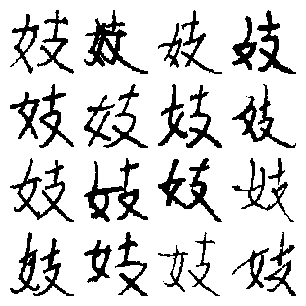 妓妓妓妓
妓妓妓妓
妓妓妓妓
妓妓妓妓